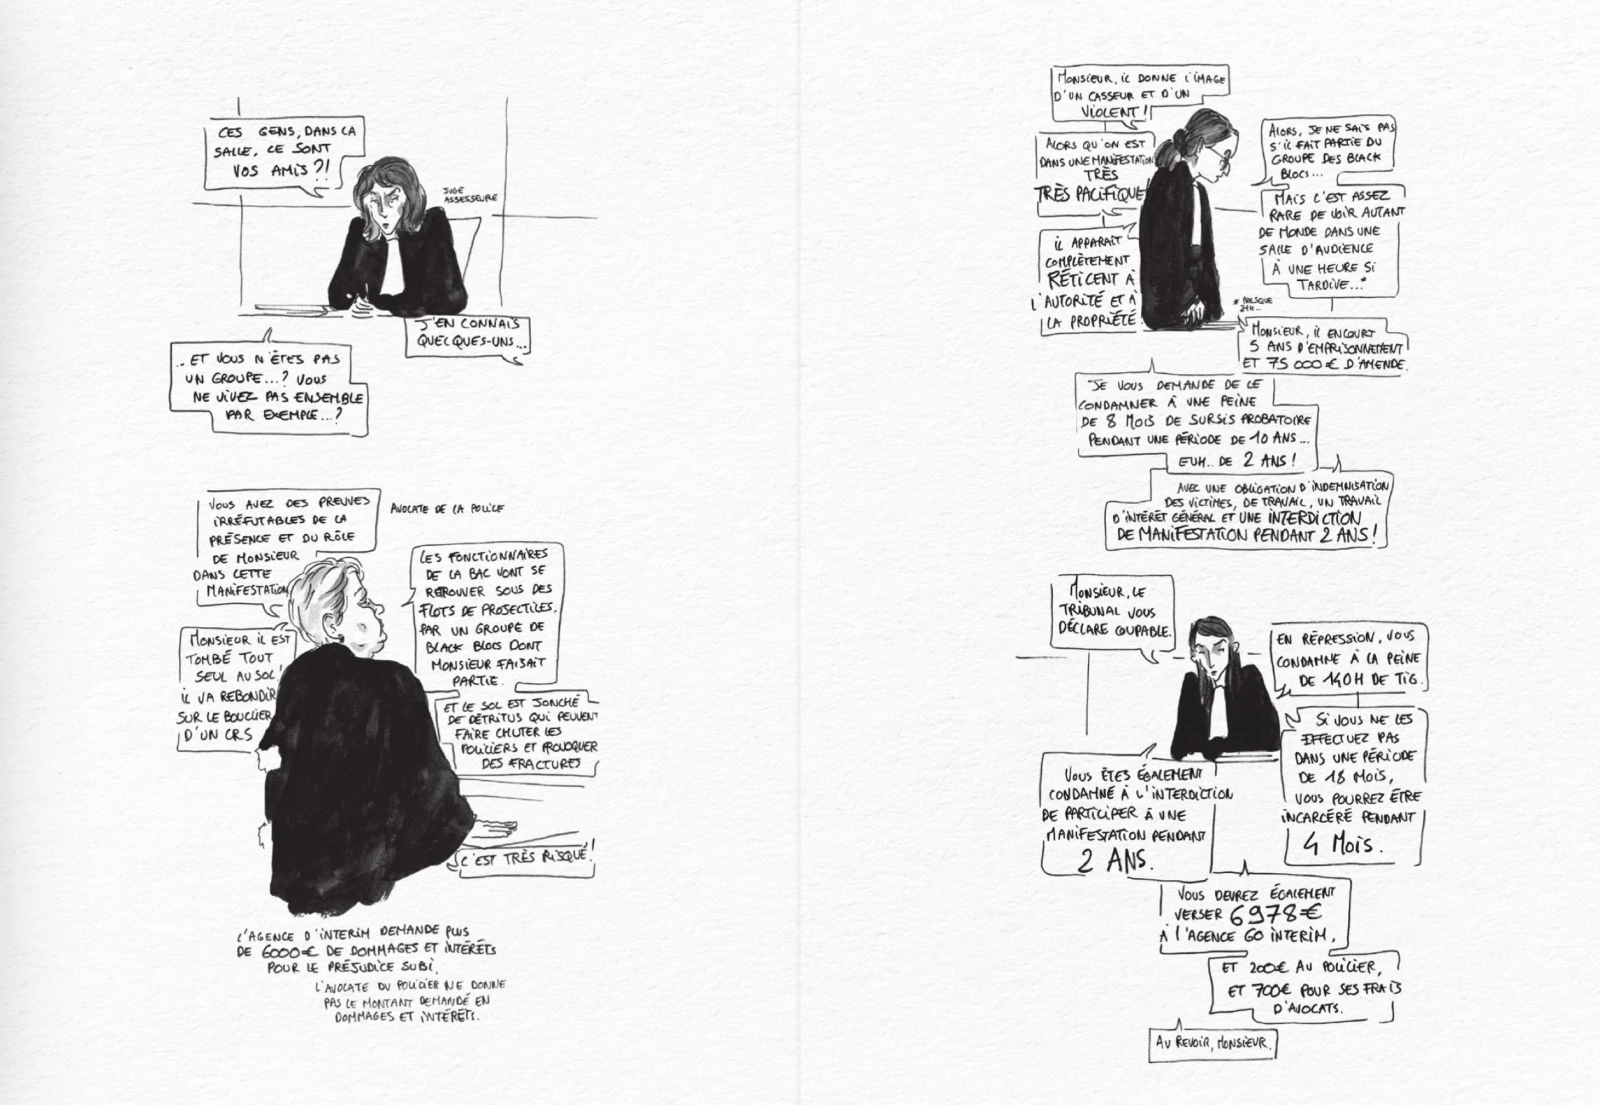 CES GENS, DANS LA
SALLE, CE SONT
VOS AMIS ?!
JUGE
ASSESSEURE
J'EN CONNAIS
QUELQUES-UNS...
.. ET VOUS N'ÊTES PAS
UN GROUPE...? VOUS
NE VIVEZ PAS ENSEMBLE
PAR EXEMPLE...?
VOUS AVEZ DES PREUVES
IRRÉFUTABLES DE LA
PRÉSENCE ET DU RÔLE
DE MONSIEUR
DANS CETTE
MANIFESTATION
AVOCATE DE LA POLICE
MONSIEUR IL EST
TOMBÉ TOUT
SEUL AU SOL!
IL VA REBONDIR
SUR LE BOUCLIER
D'UN CRS
LES FONCTIONNAIRES
DE LA BAC VONT SE
RETROUVER SOUS DES
FLOTS DE PROJECTILES,
PAR UN GROUPE DE
BLACK BLOCS DONT
MONSIEUR FAISAIT
PARTIE.
ET LE SOL EST JONCHÉ
DE DÉTRITUS QUI PEUVENT
FAIRE CHUTER LES
POLICIERS ET PROVOQUER
DES FRACTURES
C'EST TRÈS RISQUÉ!
L'AGENCE D'INTERIM DEMANDE PLUS
DE 6000€ DE DOMMAGES ET INTÉRÊTS
POUR LE PRÉJUDICE SUBI.
L'AVOCATE DU POLICIER NE DONNE
PAS LE MONTANT DEMANDÉ EN
DOMMAGES ET INTÉRÊTS.
MONSIEUR, IL DONNE L'IMAGE
D'UN CASSEUR ET D'UN
VIOLENT!
ALORS QU'ON EST
DANS UNE MANIFESTATION
TRÈS
TRÈS PACIFIQUE!
IL APPARAIT
COMPLÈTEMENT
RÉTICENT À
L'AUTORITÉ ET À
LA PROPRIÉTÉ.
ALORS, JE NE SAIS PAS
S'IL FAIT PARTIE DU
GROUPE DES BLACK
BLOCS...
MAIS C'EST ASSEZ
RARE DE VOIR AUTANT
DE MONDE DANS UNE
SALLE D'AUDIENCE
À UNE HEURE SI
TARDIVE...*
* PRESQUE
21H...
MONSIEUR, IL ENCOURT
5 ANS D'EMPRISONNEMENT
ET 75 000€ D'AMENDE.
JE VOUS DEMANDE DE LE
CONDAMNER À UNE PEINE
DE 8 MOIS DE SURSIS PROBATOIRE
PENDANT UNE PÉRIODE DE 10 ANS...
EUH.. DE 2 ANS!
AVEC UNE OBLIGATION D'INDEMNISATION
DES VICTIMES, DE TRAVAIL, UN TRAVAIL
D'INTÉRÊT GÉNÉRAL ET UNE INTERDICTION
DE MANIFESTATION PENDANT 2 ANS!
MONSIEUR, LE
TRIBUNAL VOUS
DÉCLARE COUPABLE.
EN RÉPRESSION, VOUS
CONDAMNE À LA PEINE
DE 140H DE TIG.
SI VOUS NE LES
EFFECTUEZ PAS
DANS UNE PÉRIODE
DE 18 MOIS,
VOUS POURREZ ÊTRE
INCARCÉRÉ PENDANT
4 MOIS.
VOUS ÊTES ÉGALEMENT
CONDAMNÉ À L'INTERDICTION
DE PARTICIPER À UNE
MANIFESTATION PENDANT
2 ANS.
VOUS DEVREZ ÉGALEMENT
VERSER 6978€
À L'AGENCE GO INTERIM,
ET 200€ AU POLICIER,
ET 700€ POUR SES FRAIS
D'AVOCATS.
AU REVOIR, MONSIEUR.